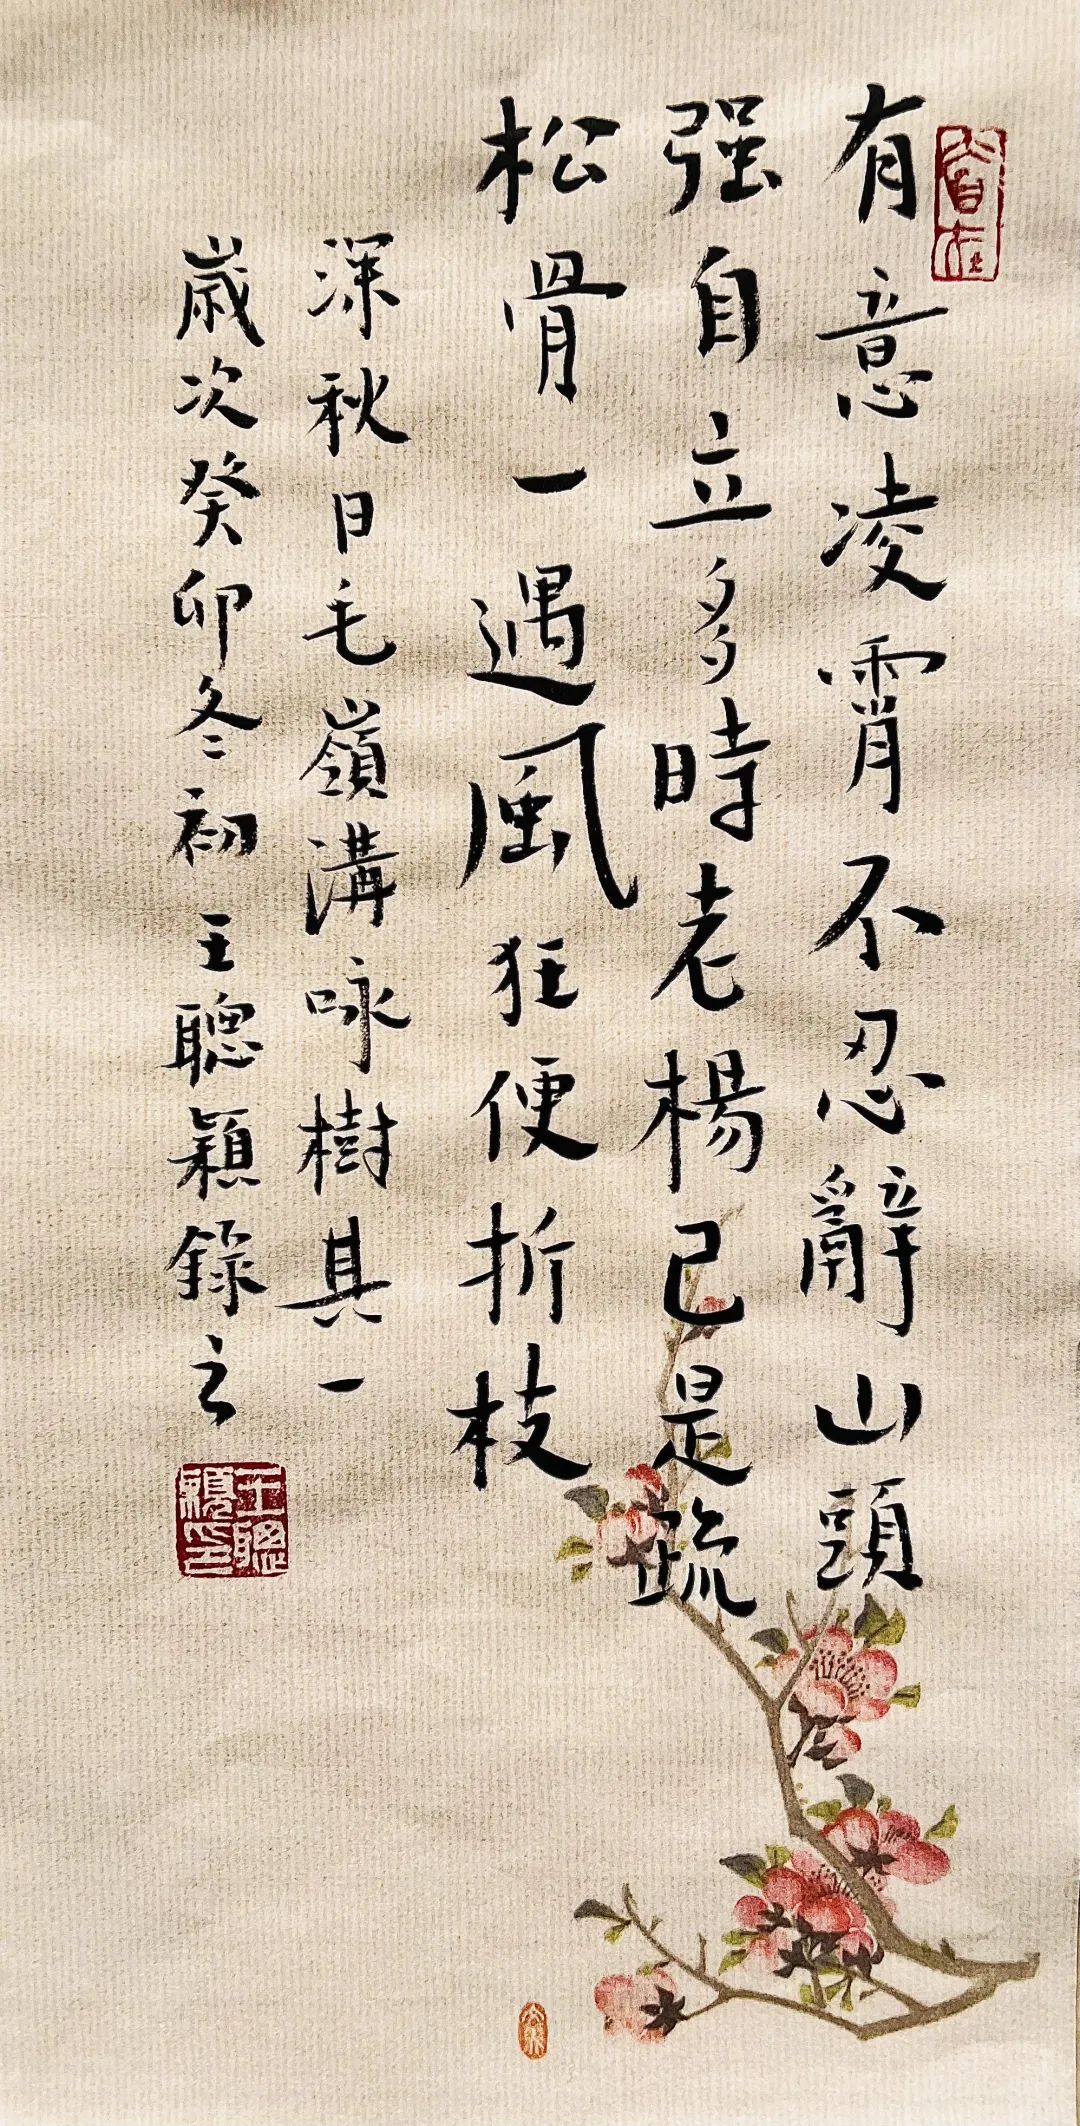 有意凌霄不忍辭山頭
强自立多時老楊已是疏
松骨一遇風狂便折枝
深秋日毛嶺溝咏樹其一
歲次癸卯冬初王聰穎錄之
王聰穎印